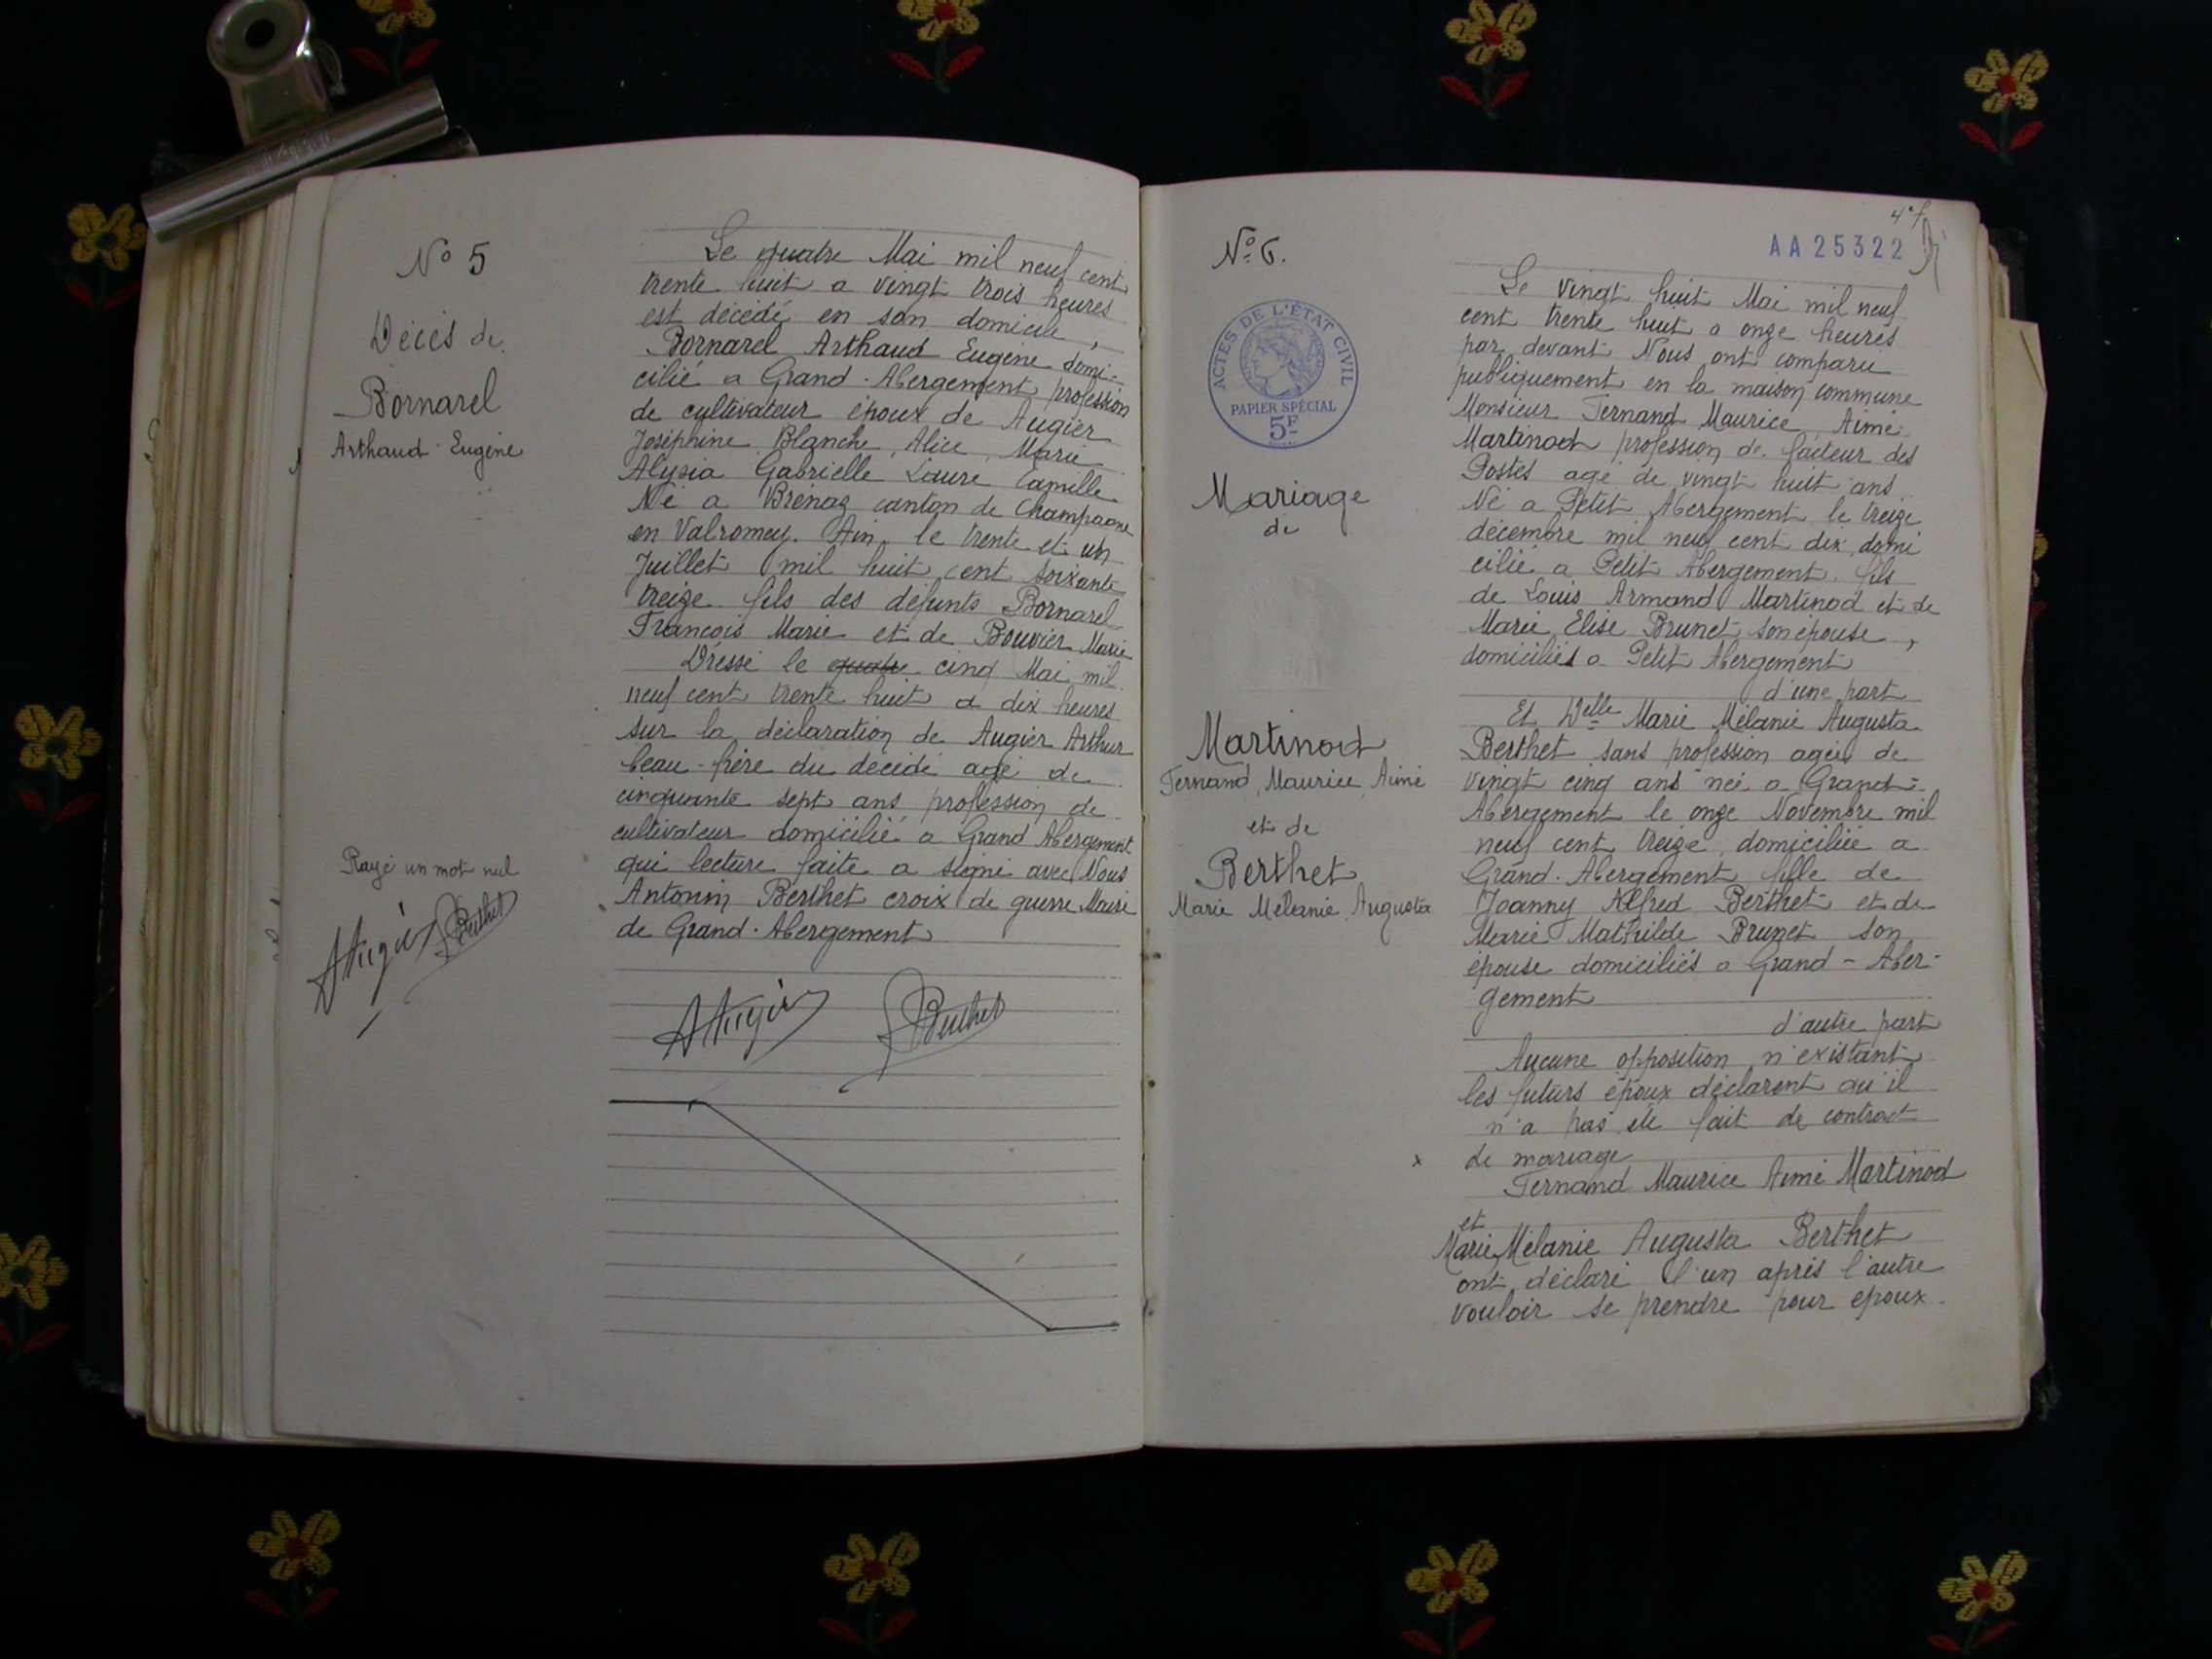 N° 5
Décès de
Bornarel
Arthaud Eugène
Le quatre Mai mil neuf cent
trente huit a vingt trois heures
est décédé en son domicile,
Bornarel Arthaud Eugène domi-
cilié a Grand-Abergement profession
de cultivateur époux de Augier
Joséphine Blanche, Alice, Marie
Alysia Gabrielle Laure Camille
Né a Brénaz canton de Champagne
en Valromey. Ain. le trente et un
Juillet mil huit cent soixante
treize fils des défunts Bornarel
François Marie et de Bouvier Marie
Dressé le quatre cinq Mai mil
neuf cent trente huit a dix heures
sur la déclaration de Augier Arthur
beau-frère du décédé agé de
cinquante sept ans profession de
cultivateur domicilié a Grand Abergement
qui lecture faite a signé avec Nous
Antonin Berthet croix de guerre Maire
de Grand-Abergement
Rayé un mot nul
AAugier Berthet
AAugier Berthet
N° 6.
ACTES DE L'ÉTAT CIVIL
PAPIER SPÉCIAL
5F
Mariage
de
Martinod
Fernand, Maurice, Aimé
et de
Berthet
Marie Mélanie, Augusta
4e f
AA 25322
Le vingt huit Mai mil neuf
cent trente huit a onze heures
par devant Nous ont comparu
publiquement en la maison commune
Monsieur Fernand Maurice, Aimé
Martinod profession de facteur des
Postes agé de vingt huit ans
Né a Petit Abergement le treize
décembre mil neuf cent dix domi
cilié a Petit Abergement. fils
de Louis Armand Martinod et de
Marie Elise Brunet son épouse,
domiciliés a Petit Abergement
d'une part
Et Delle Marie Mélanie Augusta
Berthet sans profession agée de
vingt cinq ans née a Grand-
Abergement le onze Novembre mil
neuf cent treize domiciliée a
Grand-Abergement fille de
Joanny Alfred Berthet et de
Marie Mathilde Brunet son
épouse domiciliés a Grand-Aber-
gement
d'autre part
Aucune opposition n'existant
les futurs époux déclarent qu'il
n'a pas été fait de contrat
x de mariage
Fernand Maurice Aimé Martinod
et
Marie Mélanie Augusta Berthet
ont déclaré l'un après l'autre
vouloir se prendre pour époux